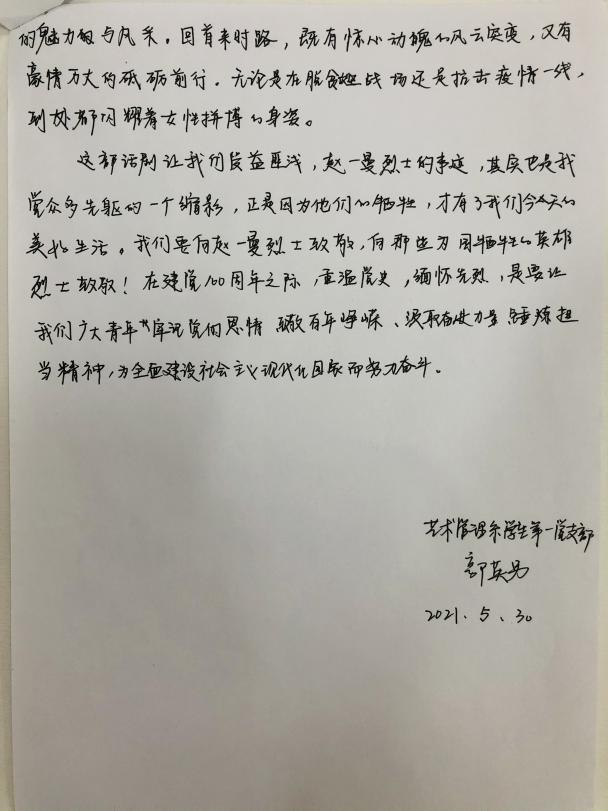 的魅力与风采。回首来时路，既有惊心动魄的风云突变，又有
豪情万丈的砥砺前行。无论是在脱贫战场还是抗击疫情一线，
到处都闪耀着女性拼搏的身姿。
这部话剧让我们受益匪浅，赵一曼烈士的事迹，其实也是我
党众多先驱的一个缩影，正是因为他们的牺牲，才有了我们今天的
美好生活。我们要向赵一曼烈士致敬，向那些为国牺牲的英雄
烈士致敬！在建党100周年之际，重温党史，缅怀先烈，是要让
我们广大青年牢记党的恩情 百年峥嵘、汲取奋进力量 锤炼担
当精神，为全面建设社会主义现代化国家而努力奋斗。
艺术管理系学生第一党支部
郭英男
2021.5.30